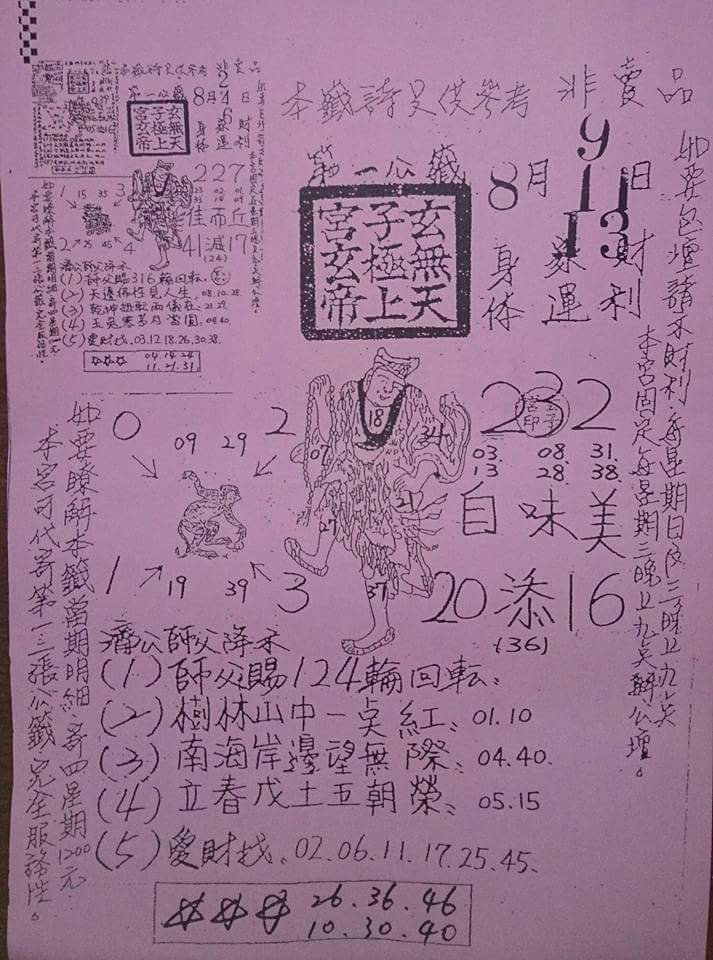 本籤詩只供參考 非賣品
第一公籤
玄無天
子極上
宮玄帝
8月 9 11 13 日
身体 家運 財利
如要包壇請示財利.每星期日及三晚上九点
本宮固定每星期三晚上九点辦公壇。
232
03. 08. 31.
13 28. 38.
自味美
20 添 16
(36)
18
07
34
21
27
37
0 2
09 29
1 3
19 39
濟公師父降示
(1) 師父賜124輪回転、
(2) 樹林山中一点紅、01.10
(3) 南海岸邊望無際、04.40.
(4) 立春戊土五朝榮、05.15
(5) 愛財找.02.06.11.17.25.45.
26.36.46
10.30.40
如要瞭解本籤當期明細.寄四星期1200元
本宮可代寄第一.三張公籤完全服務性。
本籤詩只供參考 非賣品
第一公籤
玄無天
子極上
宮玄帝
8月 日
身体 家運 財利
227
佳而丘
41 減 17
(24)
1 15 35 3
2 25 45 4
濟公師父降示
(1) 師父賜316輪回転、
(2) 天邊佛性見人生、08.10.28.
(3) 乾坤逆転兩儀在、21.22.
(4) 玉兔寒宮月當圓、04.40.
(5) 愛財找.03.12.18.26.30.38.
04.14.24
11.21.31